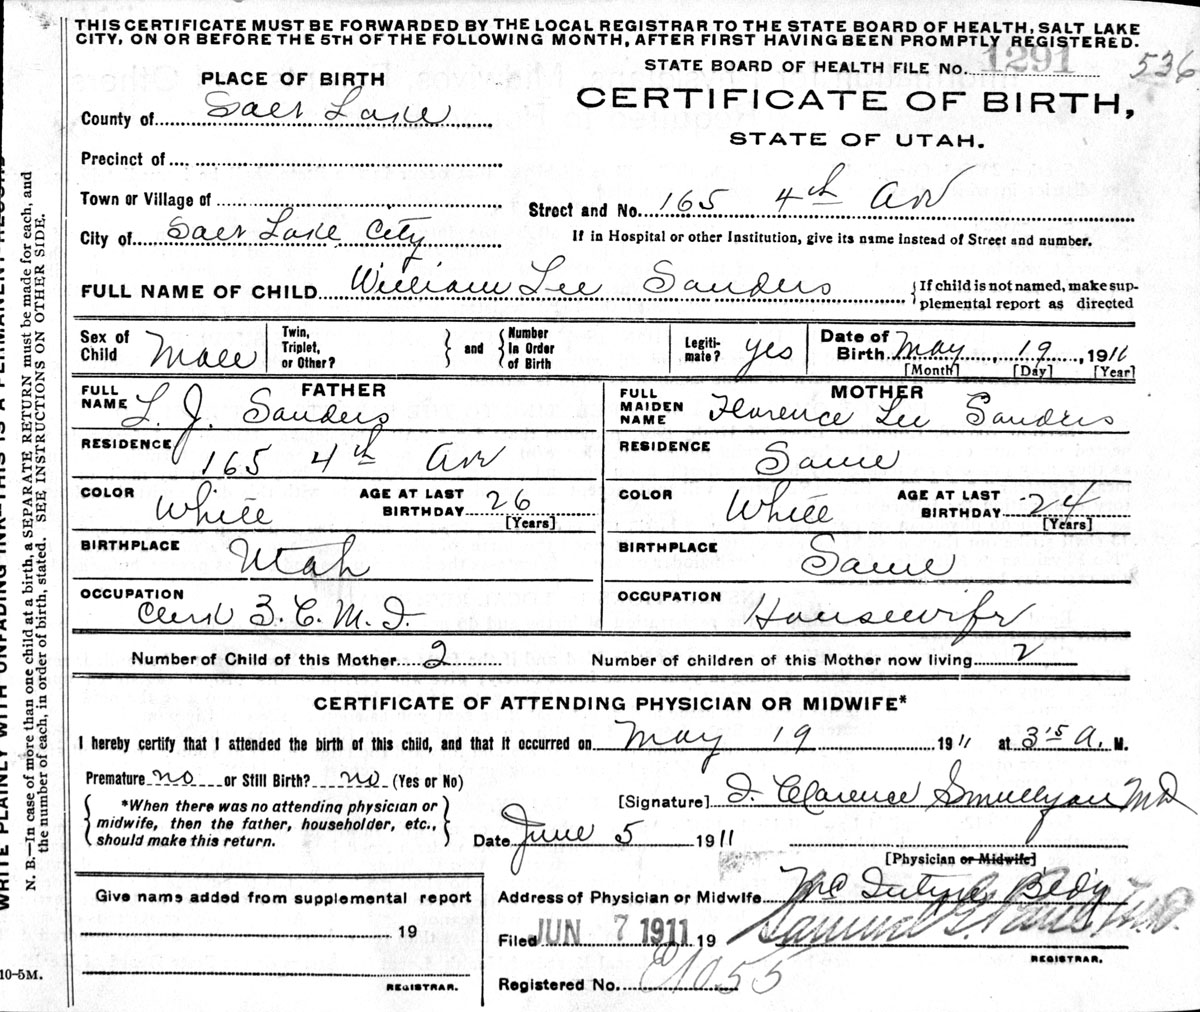 THIS CERTIFICATE MUST BE FORWARDED BY THE LOCAL REGISTRAR TO THE STATE BOARD OF HEALTH, SALT LAKE
CITY, ON OR BEFORE THE 5TH OF THE FOLLOWING MONTH, AFTER FIRST HAVING BEEN PROMPTLY REGISTERED.
STATE BOARD OF HEALTH FILE NO. 1291 536
PLACE OF BIRTH
CERTIFICATE OF BIRTH,
STATE OF UTAH.
County of Salt Lake
Precinct of
Town or Village of
Street and No. 165 4th Av
City of Salt Lake City
If in Hospital or other Institution, give its name instead of Street and number.
FULL NAME OF CHILD William Lee Sanders
If child is not named, make sup-
plemental report as directed
Sex of Child Male
Twin, Triplet, or Other?
and
Number in Order of Birth
Legiti-mate? yes
Date of Birth May 19, 1911
[Month] [Day] [Year]
FATHER
FULL NAME L. J. Sanders
MOTHER
FULL MAIDEN NAME Florence Lee Sanders
RESIDENCE 165 4th Av
RESIDENCE Same
COLOR White
AGE AT LAST BIRTHDAY 26 [Years]
COLOR White
AGE AT LAST BIRTHDAY 24 [Years]
BIRTHPLACE Utah
BIRTHPLACE Same
OCCUPATION Clerk Z. C. M. I.
OCCUPATION Housewife
Number of Child of this Mother 2
Number of children of this Mother now living 2
CERTIFICATE OF ATTENDING PHYSICIAN OR MIDWIFE*
I hereby certify that I attended the birth of this child, and that it occurred on May 19 1911 at 3 15 A. M.
Premature no or Still Birth? no (Yes or No)
*When there was no attending physician or
midwife, then the father, householder, etc.,
should make this return.
[Signature] Clarence MD
Date June 5 1911
[Physician or Midwife]
Give name added from supplemental report
19
REGISTRAR.
Address of Physician or Midwife
Filed JUN 7 1911 19
Samuel G.
REGISTRAR.
Registered No. 1055
10-5M.
WRITE PLAINLY WITH UNFADING INK—THIS IS A PERMANENT RECORD
N. B.—In case of more than one child at a birth a SEPARATE RETURN must be made for each, and
the number of each, in order of birth, stated. SEE INSTRUCTIONS ON OTHER SIDE.